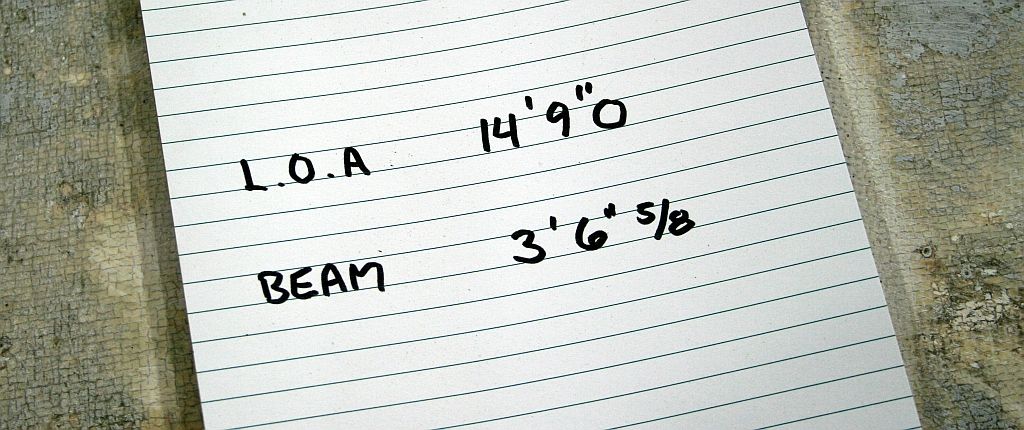 L.O.A 14'9"0
BEAM 3'6" 5/8